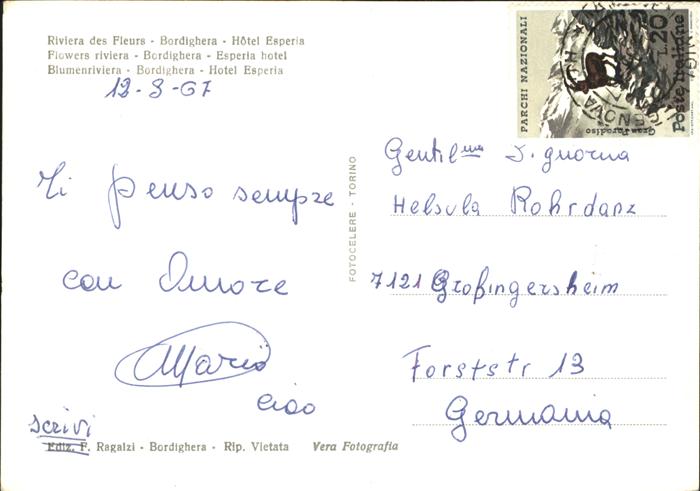 Riviera des Fleurs - Bordighera - Hôtel Esperia
Flowers riviera - Bordighera - Esperia hotel
Blumenriviera - Bordighera - Hotel Esperia
12-3-67
Ti penso sempre
con Amore
Mario
ciao
scrivi
Ediz. F. Ragalzi - Bordighera - Rip. Vietata Vera Fotografia
FOTOCELERE - TORINO
PARCHI NAZIONALI
Gran Paradiso
L.20
Poste Italiane
GENOVA
Gentil.ma Signorina
Helsula Rohrdanz
7121 Großingersheim
Forststr 13
Germania